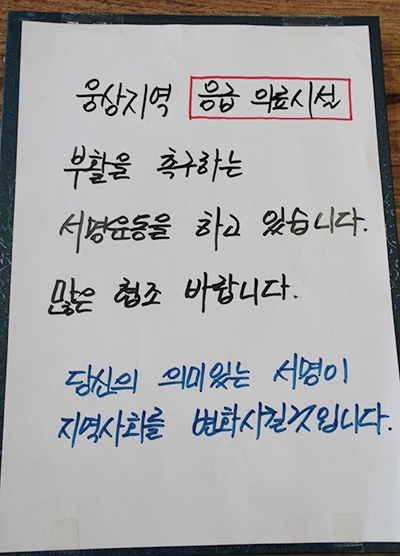 웅상지역 응급 의료시설
부활을 촉구하는
서명운동을 하고 있습니다.
많은 협조 바랍니다.
당신의 의미있는 서명이
지역사회를 변화시킬것입니다.